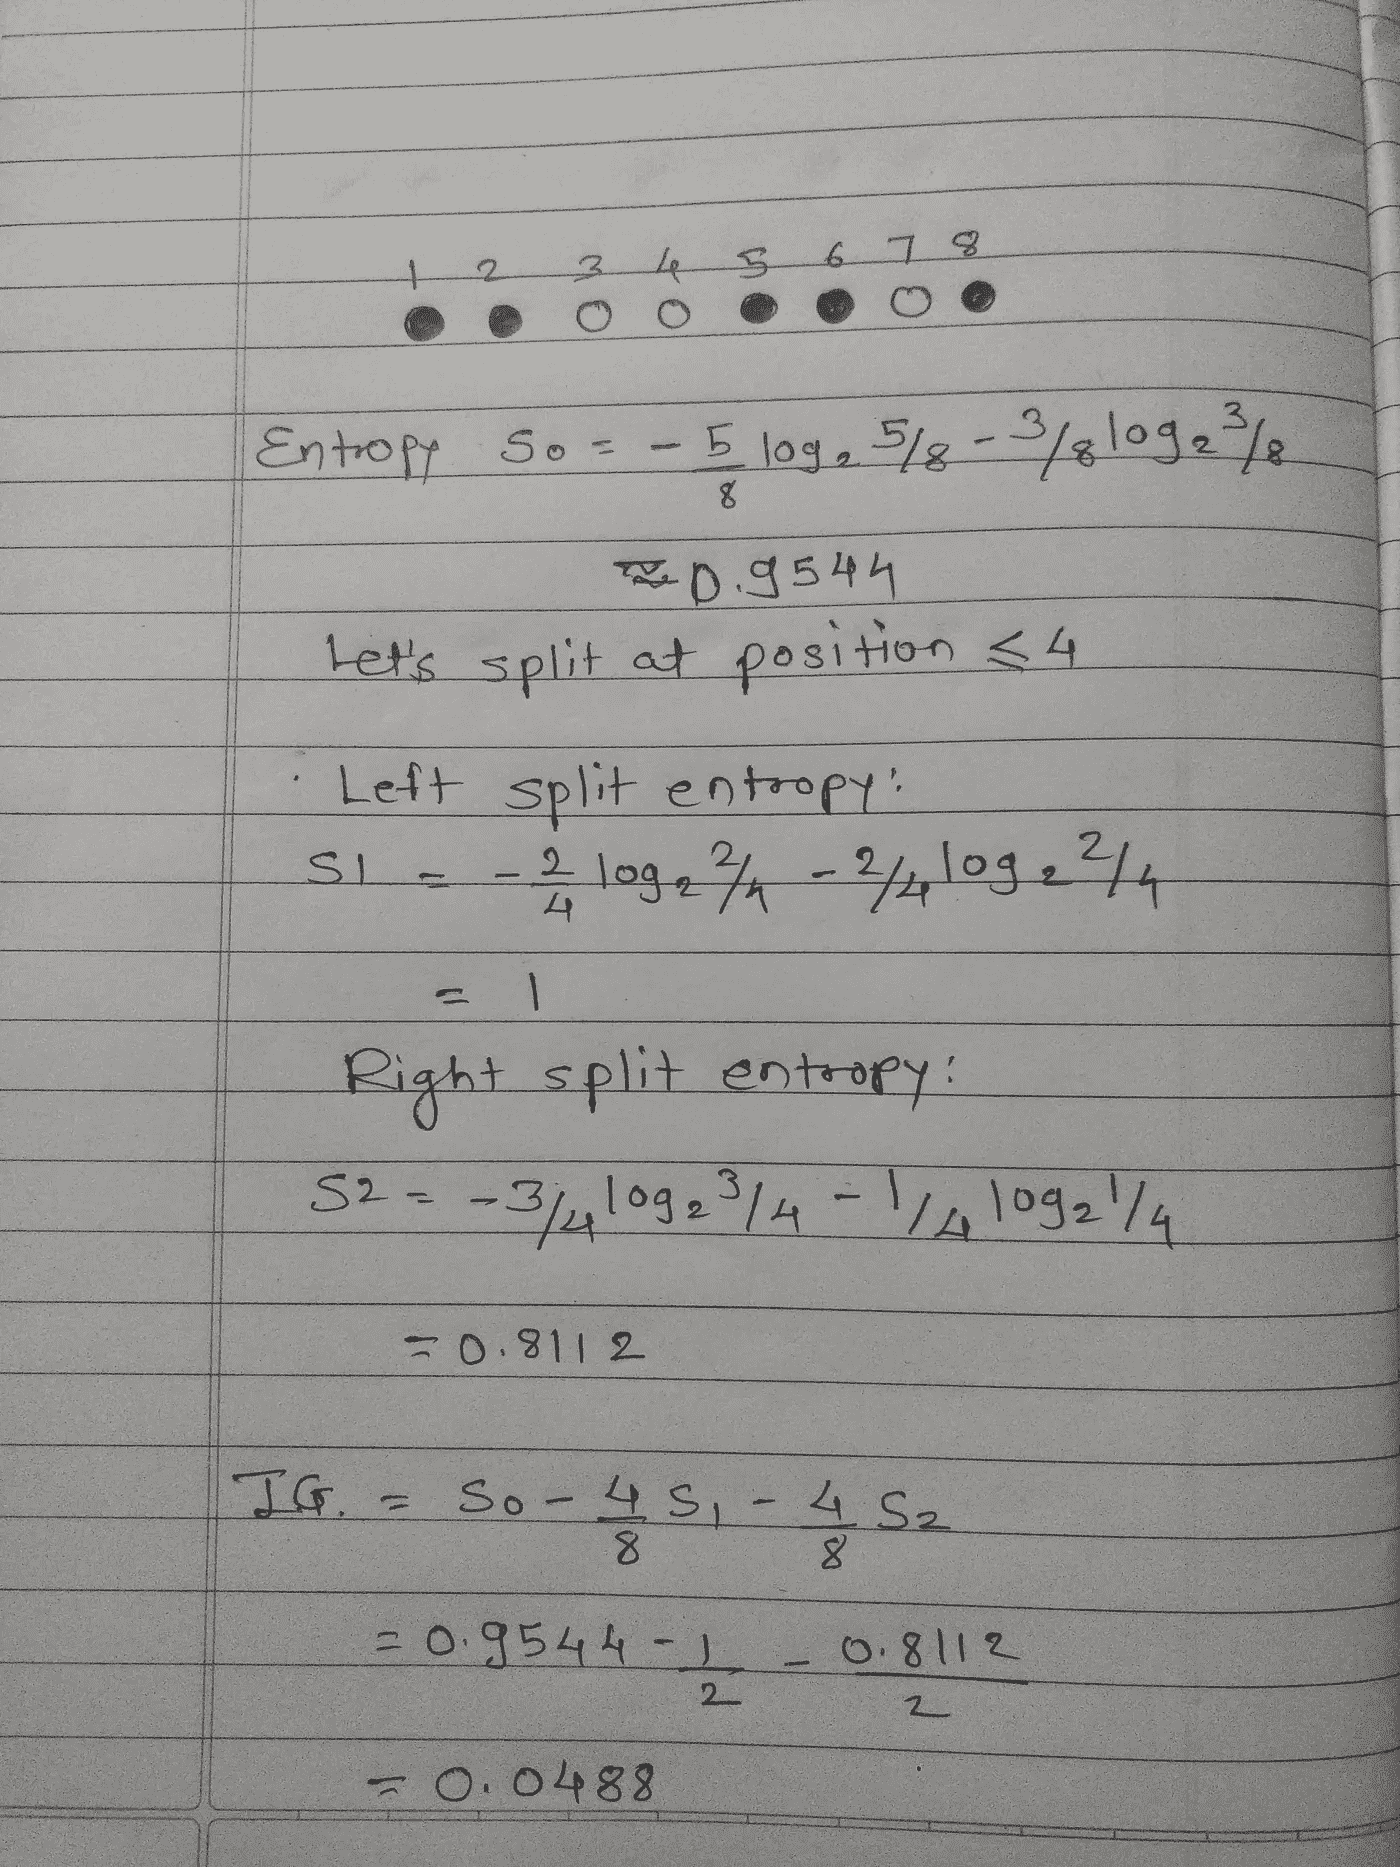 1 2 3 4 5 6 7 8
Entropy S0 = - 5/8 log₂ 5/8 - 3/8 log₂ 3/8
≈ 0.9544
Let's split at position ≤ 4
Left split entropy:
S1 = - 2/4 log₂ 2/4 - 2/4 log₂ 2/4
= 1
Right split entropy:
S2 = - 3/4 log₂ 3/4 - 1/4 log₂ 1/4
= 0.8112
IG. = S0 - 4/8 S₁ - 4/8 S₂
= 0.9544 - 1/2 - 0.8112/2
= 0.0488